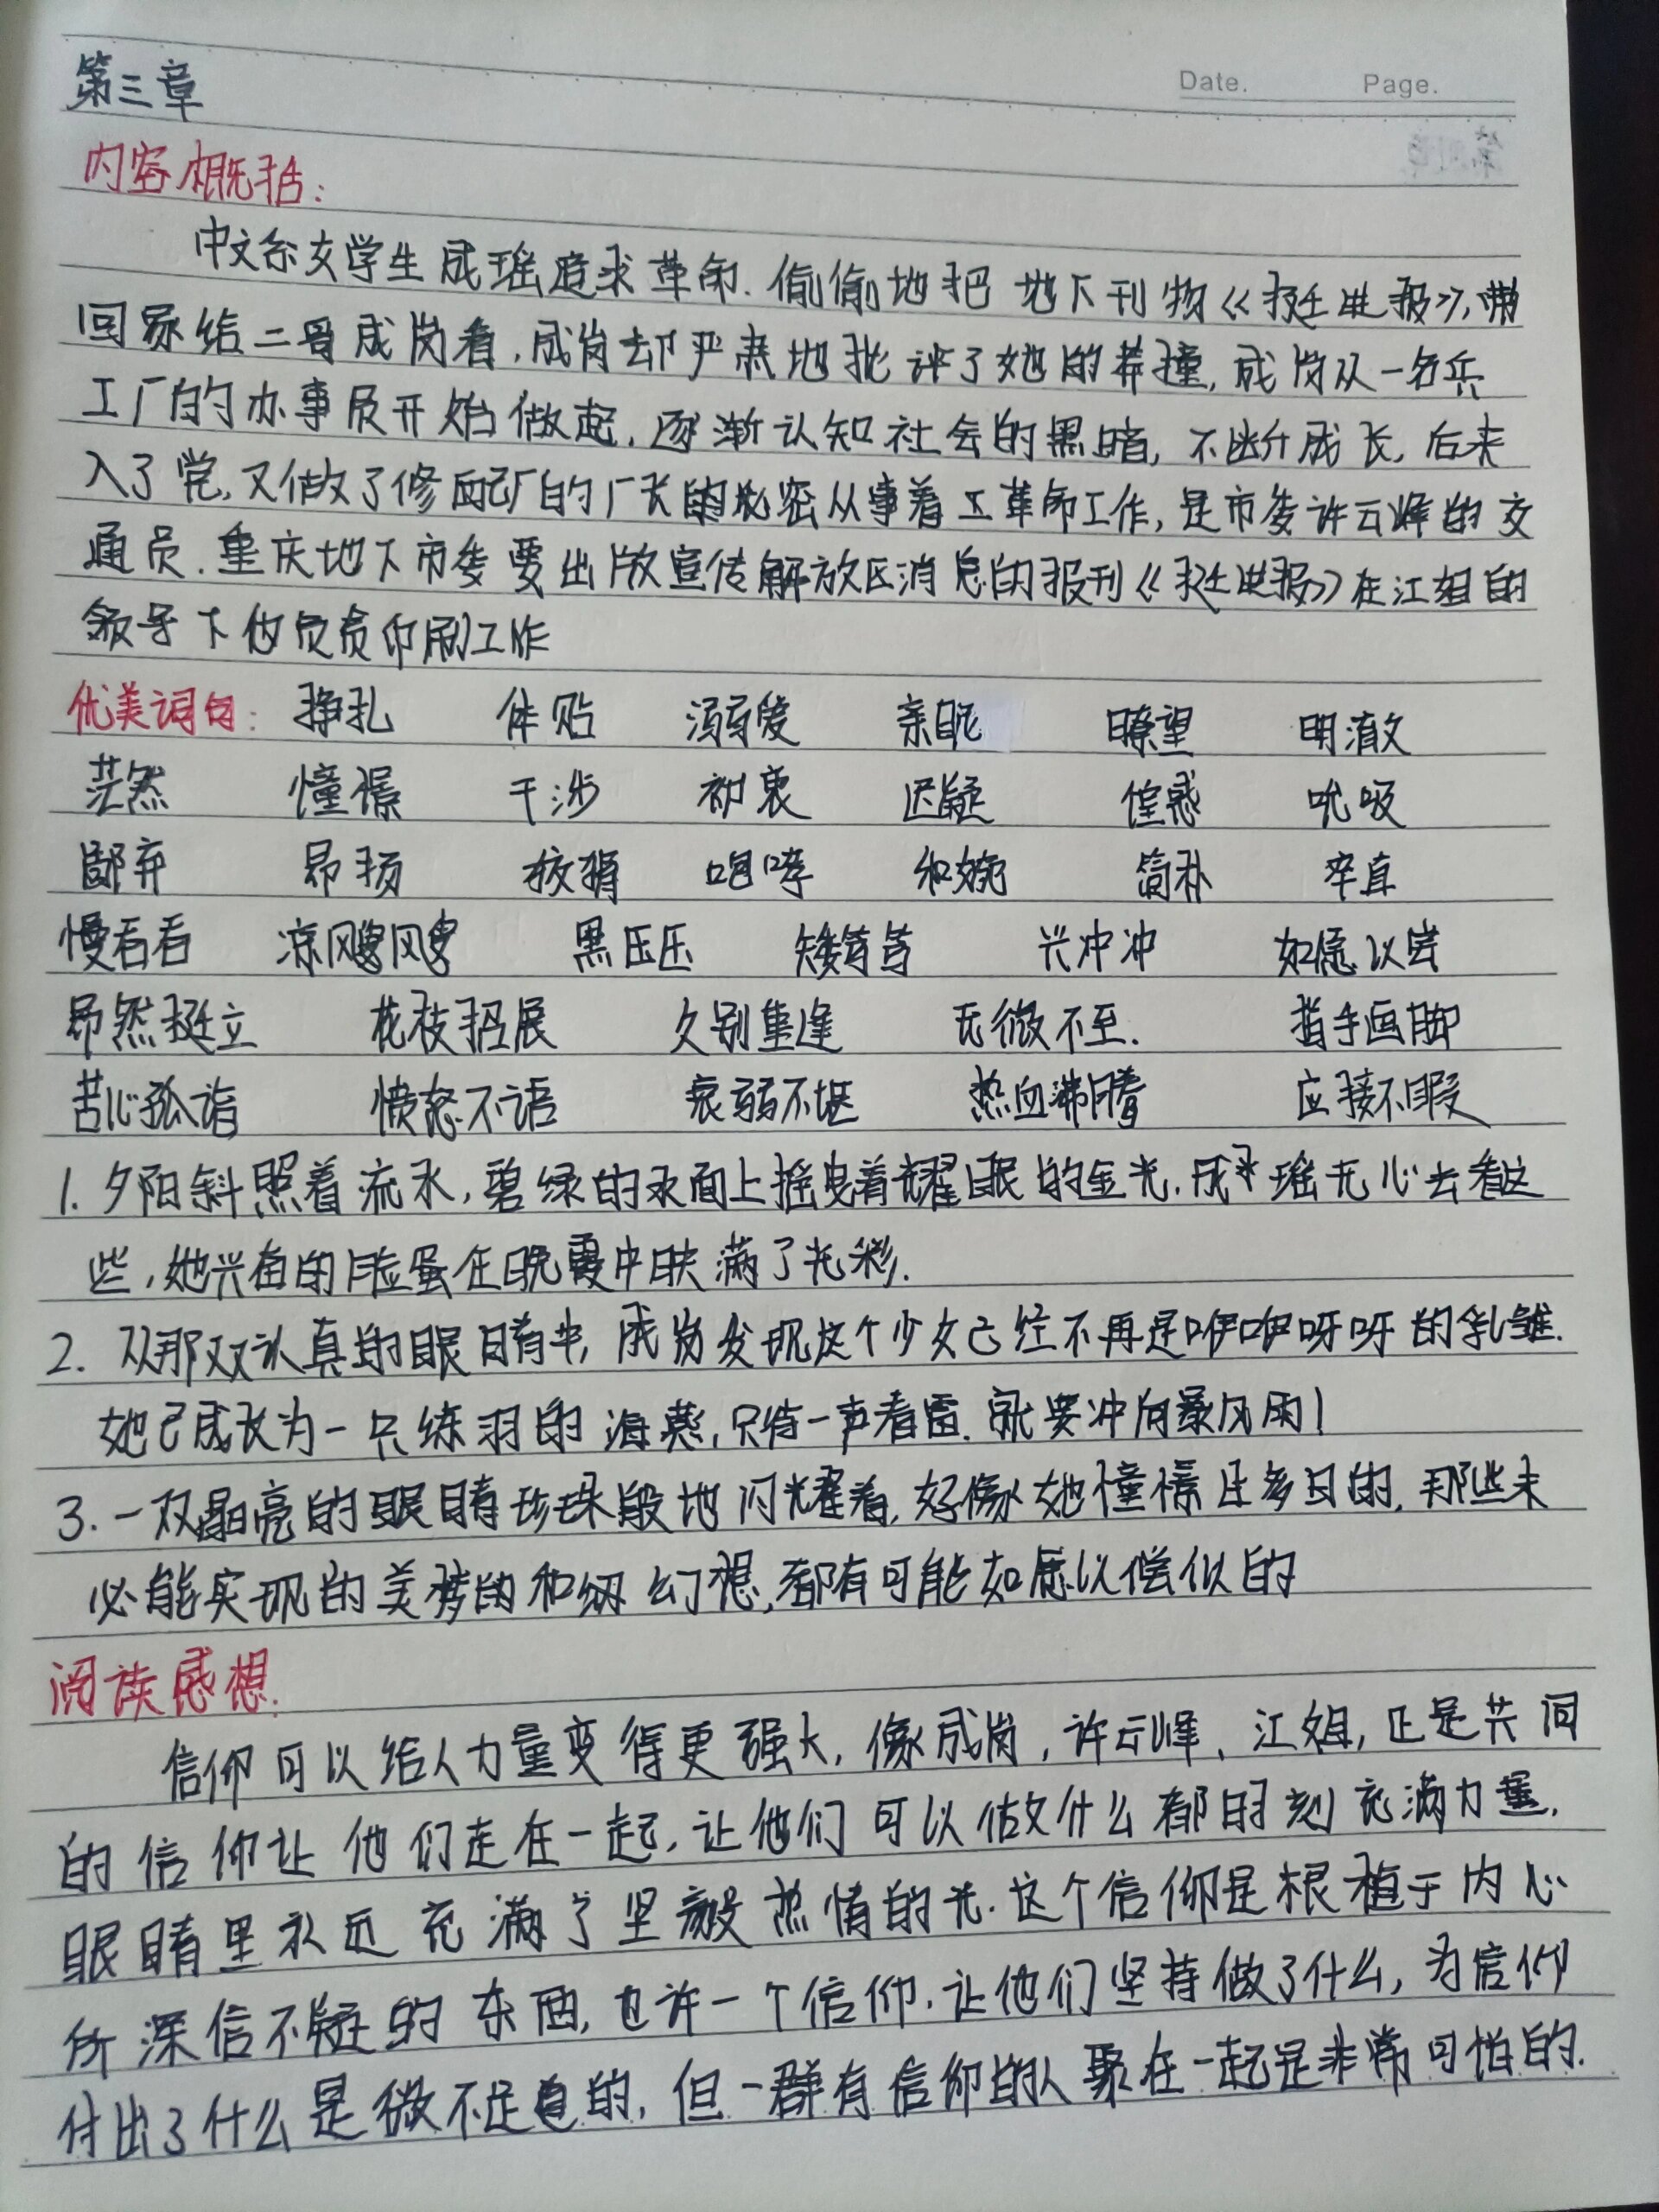 Date. Page.
第三章
内容概括：
中文系女学生成瑶追求革命.偷偷地把地下刊物《挺进报》,带
回家给二哥成岗看,成岗却严肃地批评了她的莽撞,成岗从一名兵
工厂的办事员开始做起,逐渐认知社会的黑暗,不断成长,后来
入了党,又做了修配厂的厂长的秘密从事着工革命工作,是市委许云峰的交
通员.重庆地下市委要出版宣传解放区消息的报刊《挺进报》在江姐的
领导下他负责印刷工作
优美词句： 挣扎 体贴 溺爱 亲昵 瞭望 明澈
茫然 憧憬 干涉 初衷 迟疑 惶惑 吮吸
鄙弃 昂扬 披猖 咆哮 和婉 简朴 率直
慢吞吞 凉飕飕 黑压压 矮笃笃 兴冲冲 如愿以尝
昂然挺立 花枝招展 久别重逢 无微不至. 指手画脚
苦心孤诣 愤怒不语 衰弱不堪 热血沸腾 应接不暇
1. 夕阳斜照着流水,碧绿的水面上摇曳着耀眼的金光.成瑶无心去看这
些,她兴奋的脸蛋在晚霞中映满了光彩.
2. 从那双认真的眼睛中,成岗发现这个少女已经不再是咿咿呀呀的乳雏.
她已成长为一只练羽的海燕,只待一声春雷.就要冲向暴风雨！
3. 一双晶亮的眼睛珍珠般地闪耀着,好像她憧憬过多日的,那些未
必能实现的美梦的和幻想,都有可能如愿以偿似的
阅读感想.
信仰可以给人力量变得更强大,像成岗,许云峰、江姐,正是共同
的信仰让他们走在一起,让他们可以做什么都时刻充满力量,
眼睛里永远充满了坚毅热情的光.这个信仰是根植于内心
所深信不疑的东西,也许一个信仰.让他们坚持做了什么,为信仰
付出了什么是微不足道的,但一群有信仰的人聚在一起是非常可怕的.